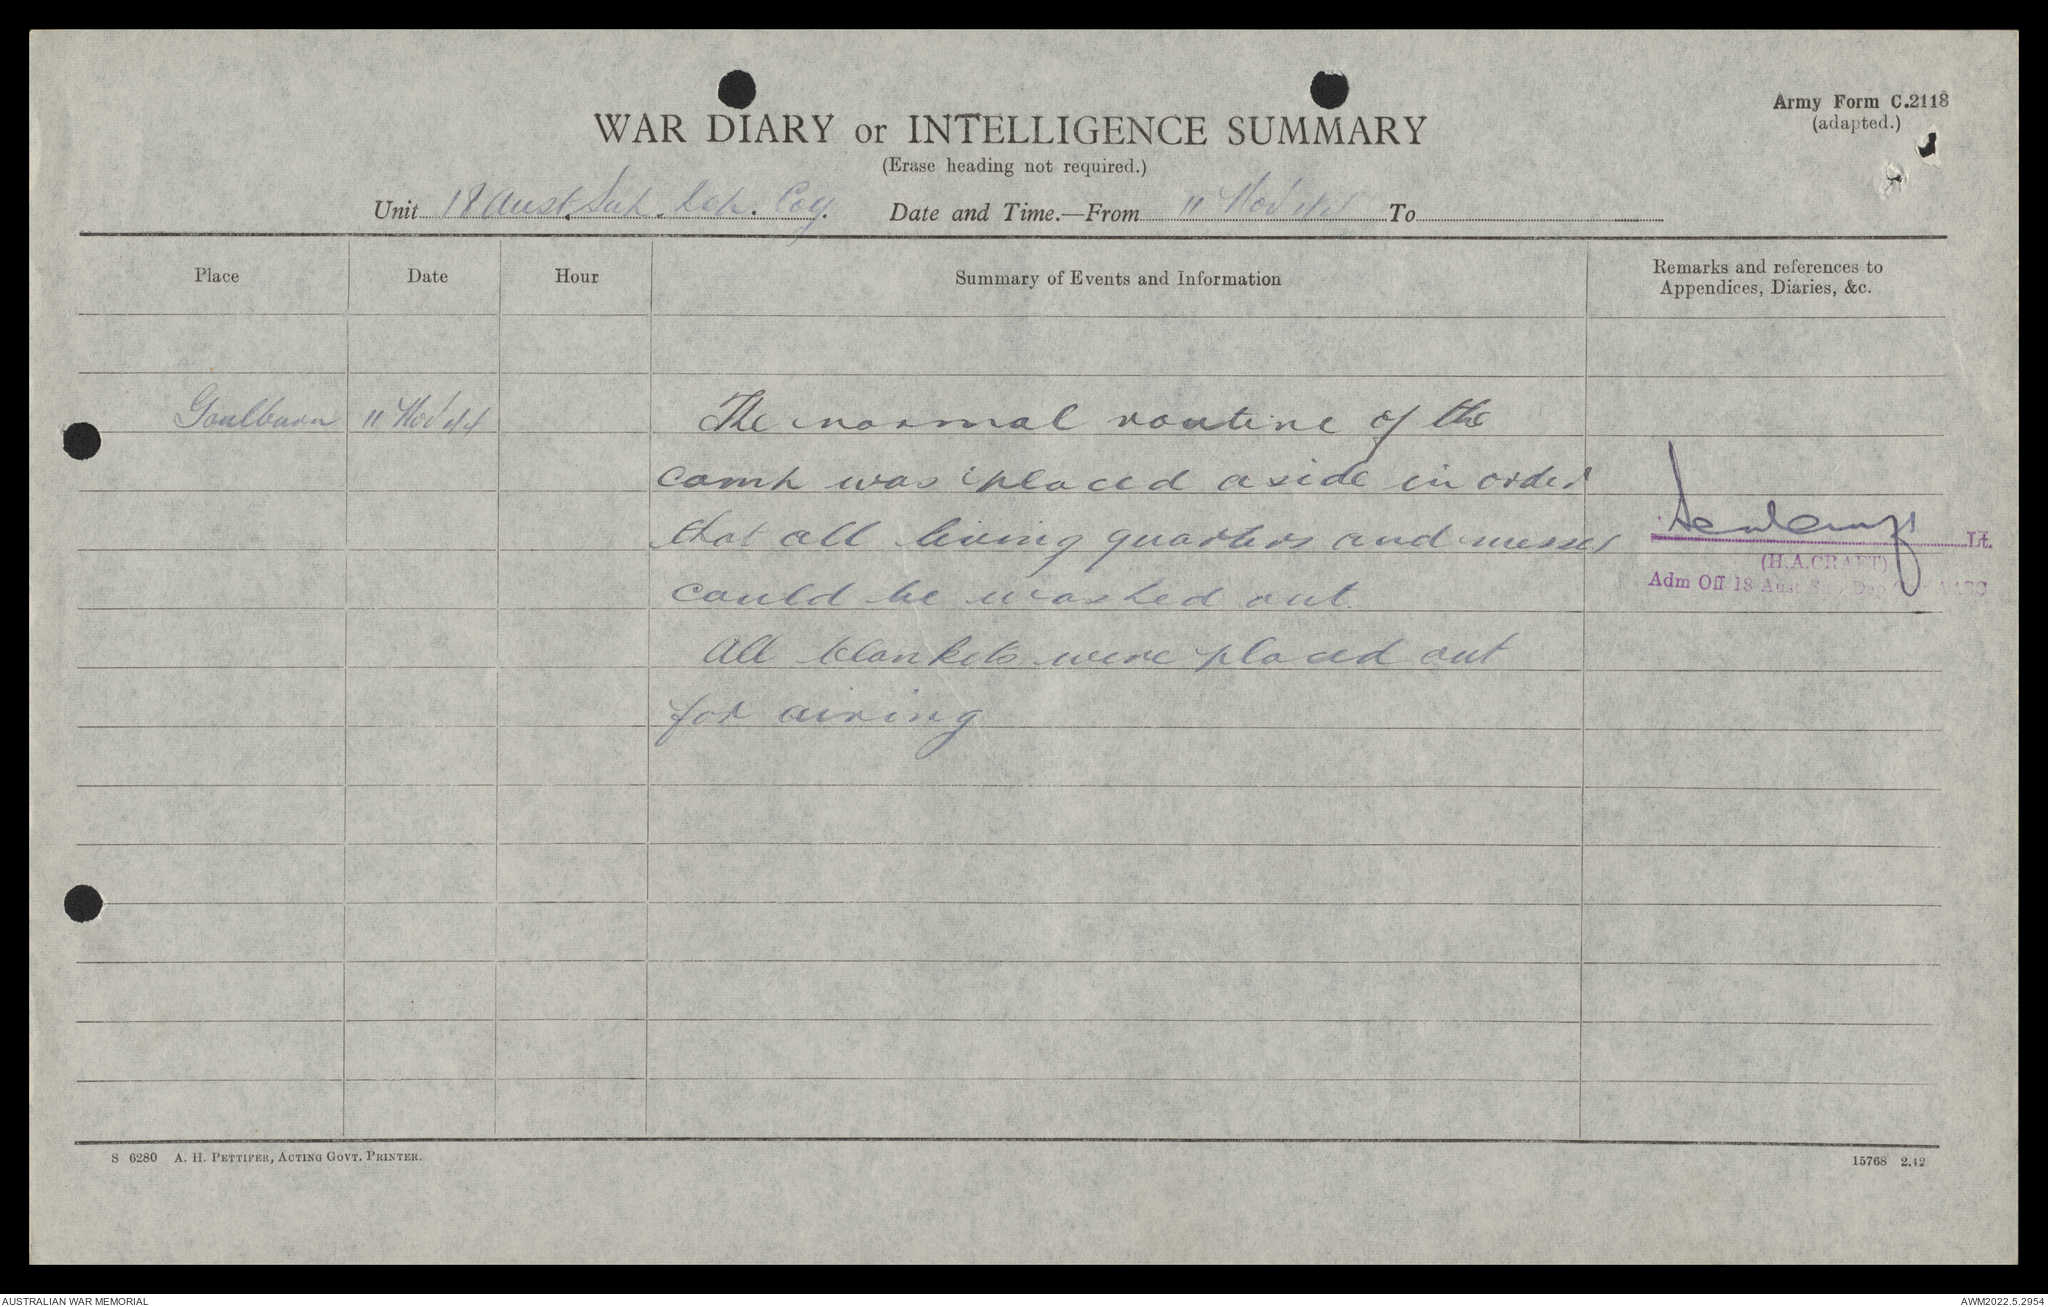 Army Form C.2118
(adapted.)
WAR DIARY or INTELLIGENCE SUMMARY
(Erase heading not required.)
Unit 18 Aust. Sup. Dep. Coy. Date and Time.—From 11 Nov 44 To
Place Date Hour Summary of Events and Information Remarks and references to
Appendices, Diaries, &c.
Goulburn 11 Nov 44 The normal routine of the
camp was placed aside in order
that all living quarters and messes
could be washed out.
All blankets were placed out
for airing
Lt.
(H.A.CRAFT)
Adm Off 18 Aust Dep AASC
S 6280 A. H. PETTIFER, ACTING GOVT. PRINTER.
15768 2.42
AUSTRALIAN WAR MEMORIAL
AWM2022.5.2954